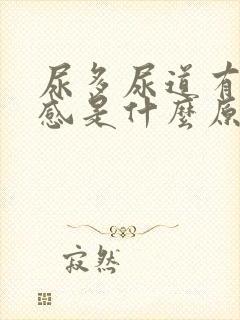 尿多尿道有
感是什麼原
寂然